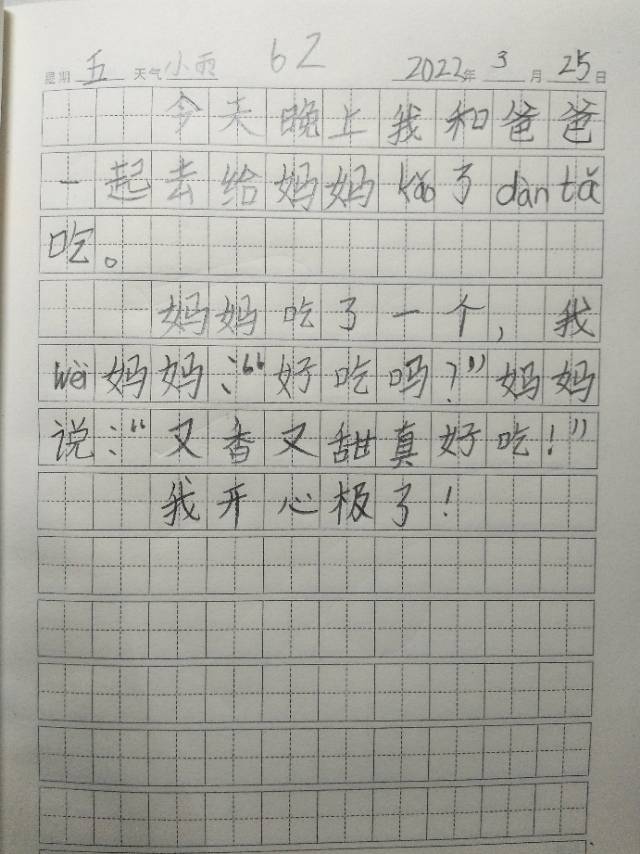 星期 五 天气 小雨 62 2022年 3月 25日
今天晚上我和爸爸
一起去给妈妈kǎo了dàntǎ
吃。
妈妈吃了一个，我
wèi妈妈：“好吃吗？”妈妈
说：“又香又甜真好吃！”
我开心极了！